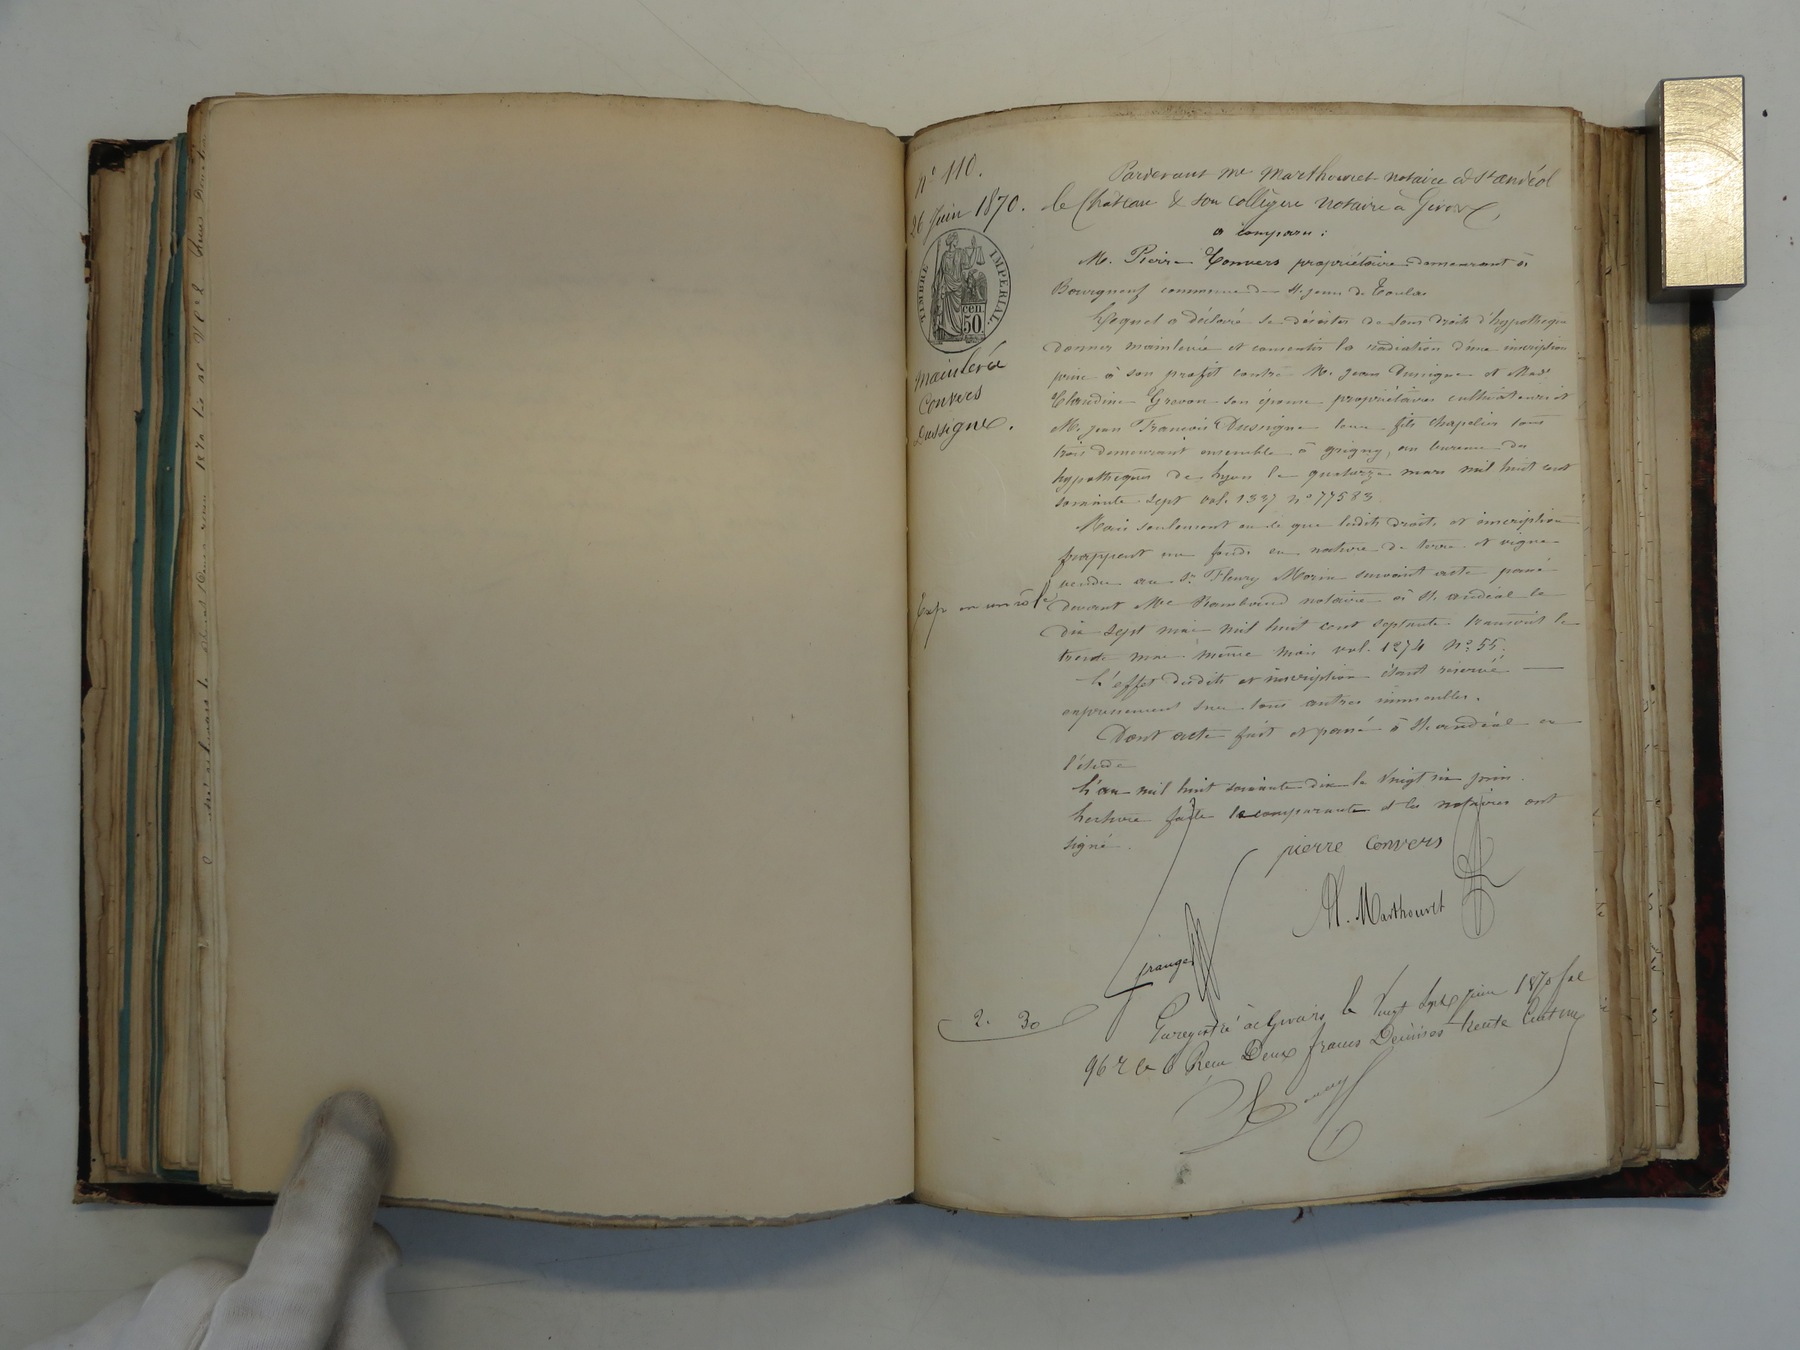 n° 110.
26 Juin 1870.
TIMBRE IMPERIAL.
cen.
50
Mainlevée
Convers
Dussigne.
Exp en un rôle
2. 30
Pardevant Me Marthouret notaire à St andéol
le Château & son collègue notaire à Givors,
a comparu :
M. Pierre Convers propriétaire demeurant à
Bourgneuf commune de St jean de Toulas
Lequel a déclaré se désister de tous droits d'hypothèque
donner mainlevée et consentir la radiation d'une inscription
prise à son profit contre M. Jean Dussigne et Made
Claudine Grevon son épouse propriétaires cultivateurs et
M. jean François Dussigne leur fils chapelier tous
trois demeurant ensemble à grigny, au bureau des
hypothèques de Lyon le quatorze mars mil huit cent
soixante sept vol. 1337 n° 77583.
Mais seulement en ce que lesdits droits et inscription
frappent un fonds en nature de terre et vigne
vendu au sr Fleury Morin suivant acte passé
devant Me Rambaud notaire à St. andéal le
dix sept mai mil huit cent septante transcrit le
trente mai même mois vol. 1274 n° 55.
L'effet desdits et inscription étant réservé
expressément sur tous autres immeubles.
Dont acte fait et passé à St. andéal en
l'étude
L'an mil huit soixante dix le vingt six juin.
Lecture faite le comparant et les notaires ont
signé.
pierre Convers
M. Marthouret
frange
Enregistré à Givors le Vingt sept juin 1870 fol
96 r c 6 Reçu Deux francs Décimes trente Centimes